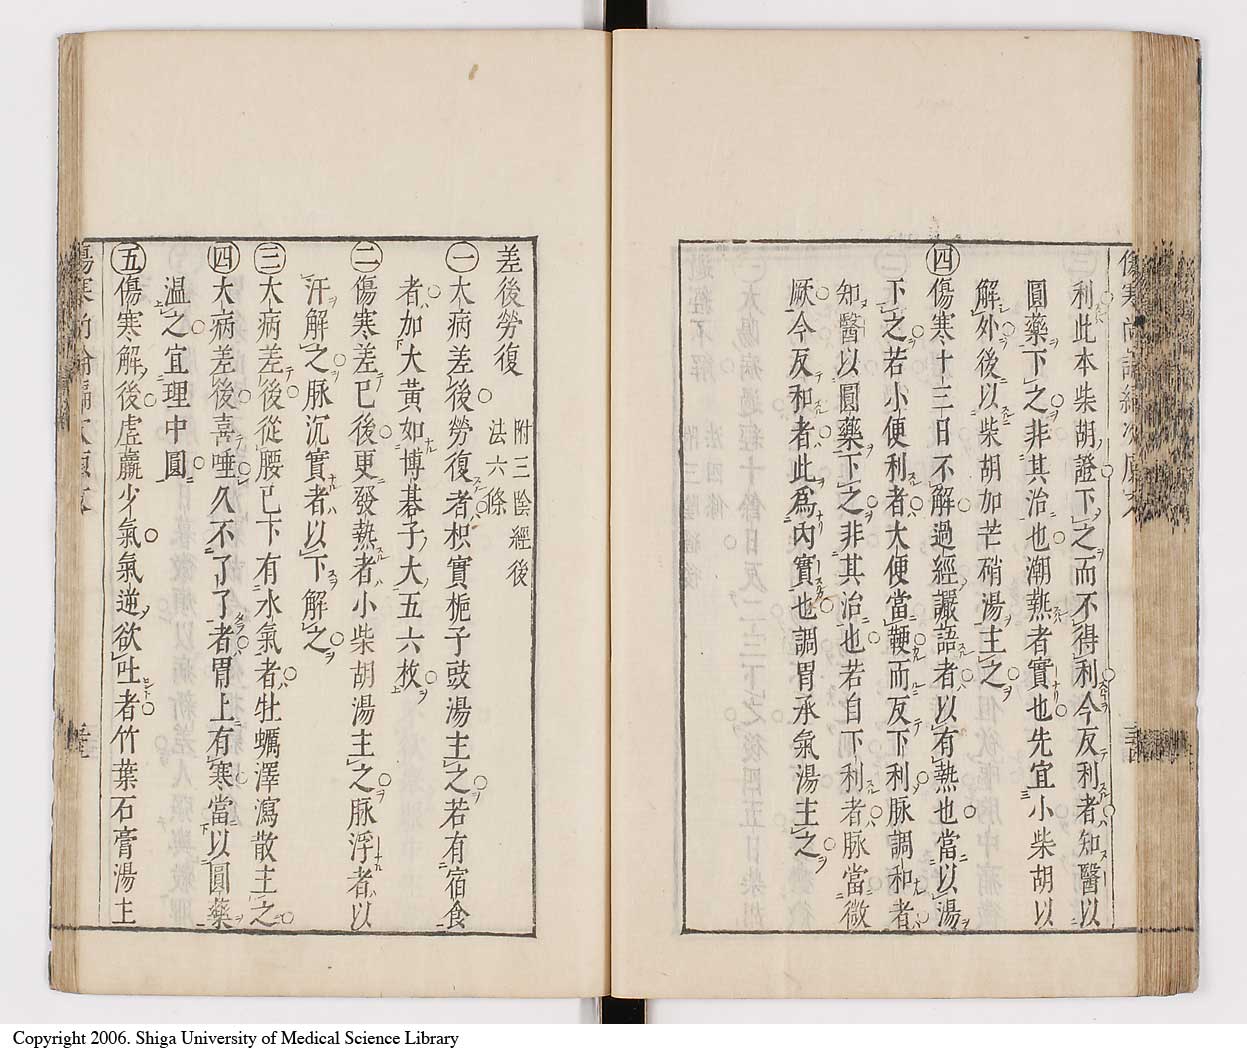 利此本柴胡證下之而不得利今反利者知醫以
圓藥下之非其治也潮熱者實也先宜小柴胡以
解外後以柴胡加芒硝湯主之
㊃傷寒十三日不解過經讝語者以有熱也當以湯
下之若小便利者大便當鞕而反下利脉調和者
知醫以圓藥下之非其治也若自下利者脉當微
厥今反和者此爲內實也調胃承氣湯主之
差後勞復 附三陰經後
法六條
㊀大病差後勞復者枳實梔子豉湯主之若有宿食
者加大黃如博碁子大五六枚
㊁傷寒差已後更發熱者小柴胡湯主之脉浮者以
汗解之脉沉實者以下解之
㊂大病差後從腰已下有水氣者牡蠣澤瀉散主之
㊃大病差後喜唾久不了了者胃上有寒當以圓藥
溫之宜理中圓
㊄傷寒解後虛羸少氣氣逆欲吐者竹葉石膏湯主
Copyright 2006. Shiga University of Medical Science Library